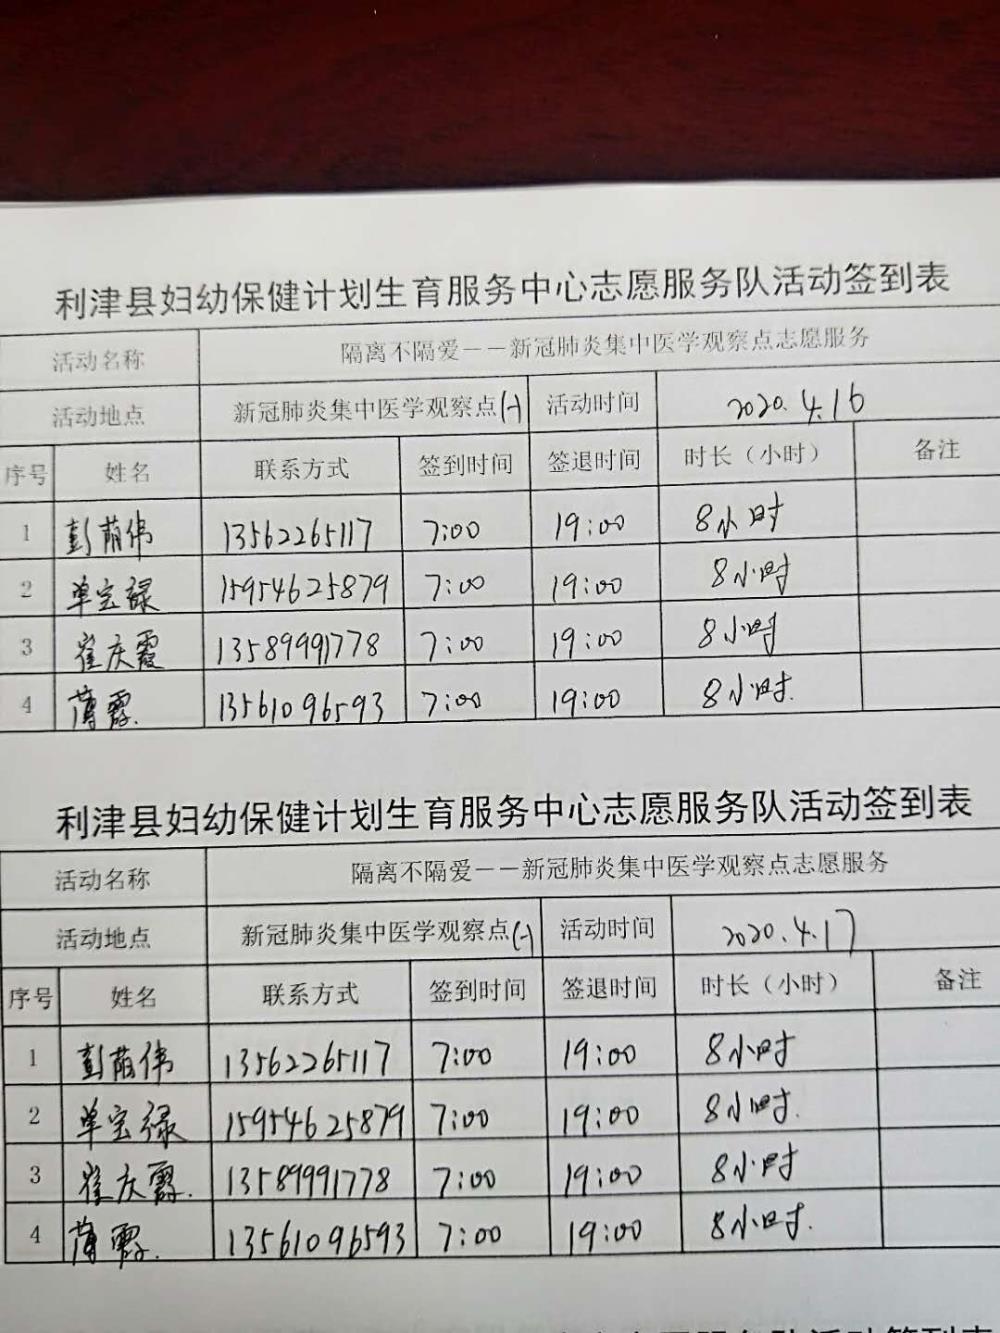 利津县妇幼保健计划生育服务中心志愿服务队活动签到表
活动名称 隔离不隔爱——新冠肺炎集中医学观察点志愿服务
活动地点 新冠肺炎集中医学观察点(一) 活动时间 2020.4.16
序号 姓名 联系方式 签到时间 签退时间 时长（小时） 备注
1 彭萌伟 13562265117 7:00 19:00 8小时
2 单宝禄 15954625879 7:00 19:00 8小时
3 崔庆霞 13589991778 7:00 19:00 8小时
4 薄霞. 13561096593 7:00 19:00 8小时.
利津县妇幼保健计划生育服务中心志愿服务队活动签到表
活动名称 隔离不隔爱——新冠肺炎集中医学观察点志愿服务
活动地点 新冠肺炎集中医学观察点(一) 活动时间 2020.4.17
序号 姓名 联系方式 签到时间 签退时间 时长（小时） 备注
1 彭萌伟 13562265117 7:00 19:00 8小时
2 单宝禄 15954625879 7:00 19:00 8小时.
3 崔庆霞. 13589991778 7:00 19:00 8小时
4 薄霞. 13561096593 7:00 19:00 8小时.